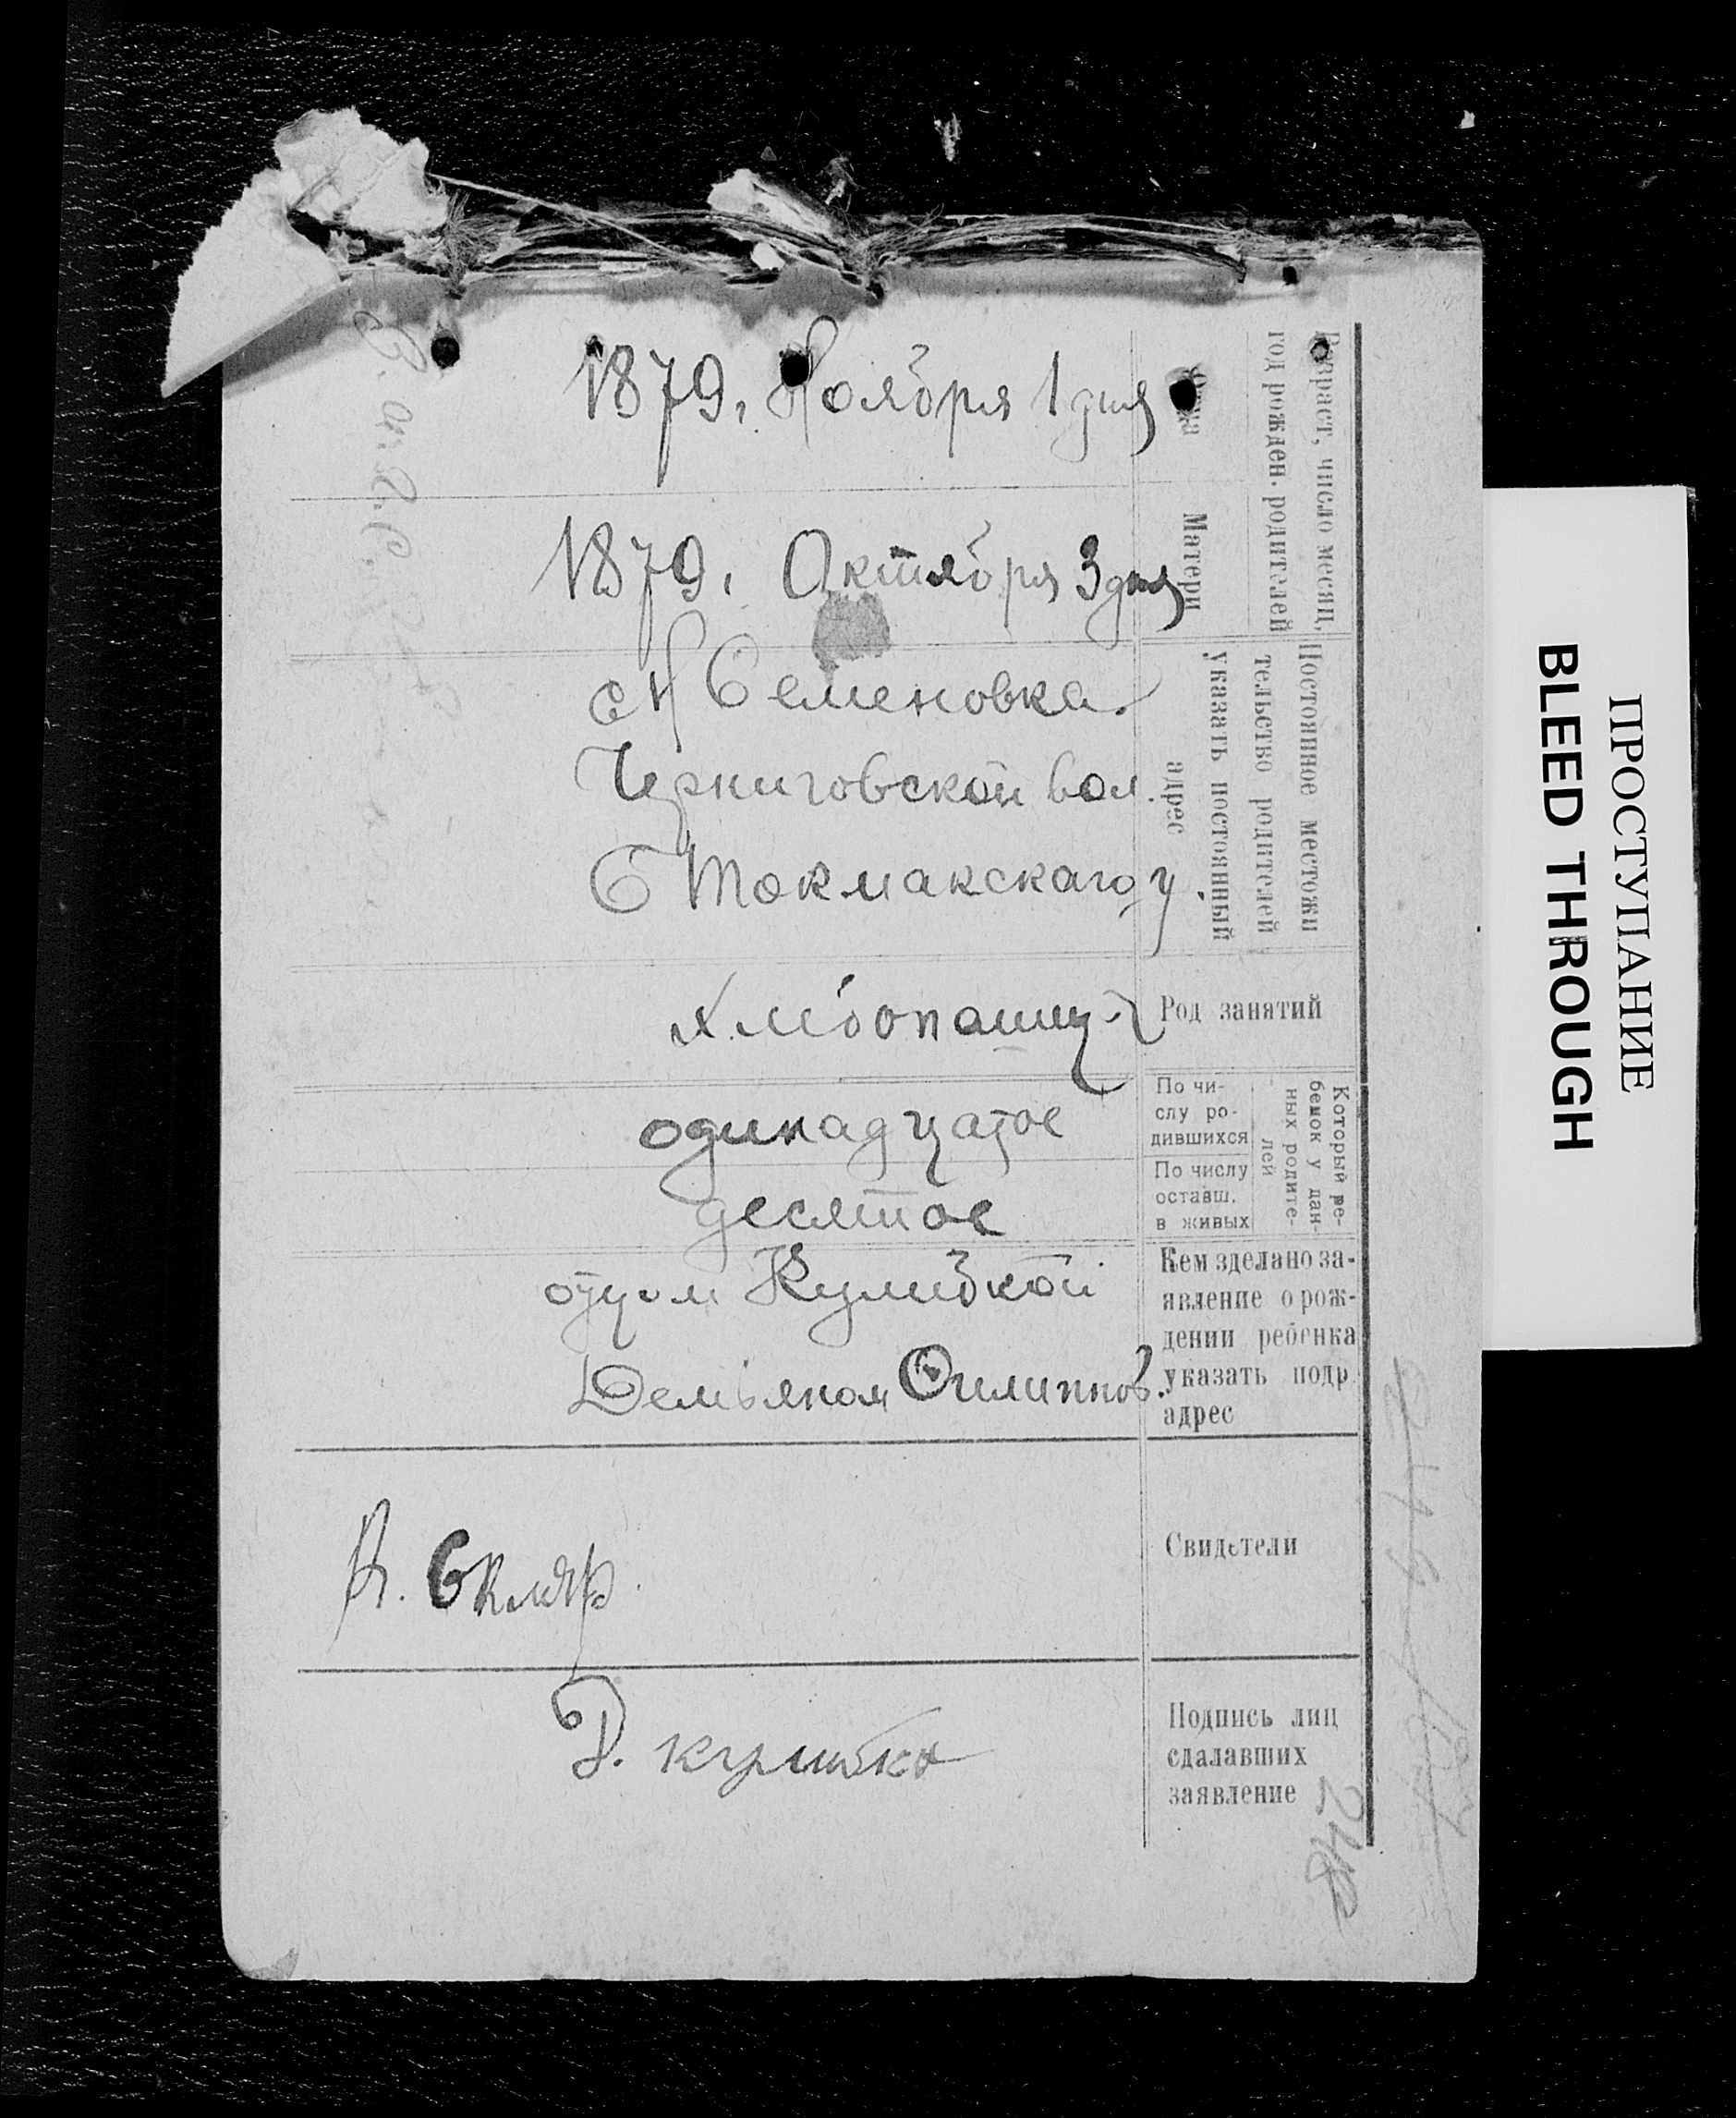 Возраст, число месяц,
год рожден. родителей
Отца
1879. Ноября 1 дня
Матери
1879. Октября 3 дня
Постоянное местожи
тельство родителей
указать постоянный
адрес
с Н Семеновка.
Черниговской вол.
Б Токмакскаго у.
Род занятий
Хлібопашец
Который ре-
бенок у дан-
ных родите-
лей
По чи-
слу ро-
дившихся
одинадцатое
По числу
оставш.
в живых
десятое
Кем зделано за-
явление о рож-
дении ребенка
указать подр.
адрес
отцом Кулибкой
Демьяном Филиппов.
Свидетели
А. Скляр.
Подпись лиц
сдалавших
заявление
Д. кулибка
248
ПРОСТУПАНИЕ
BLEED THROUGH